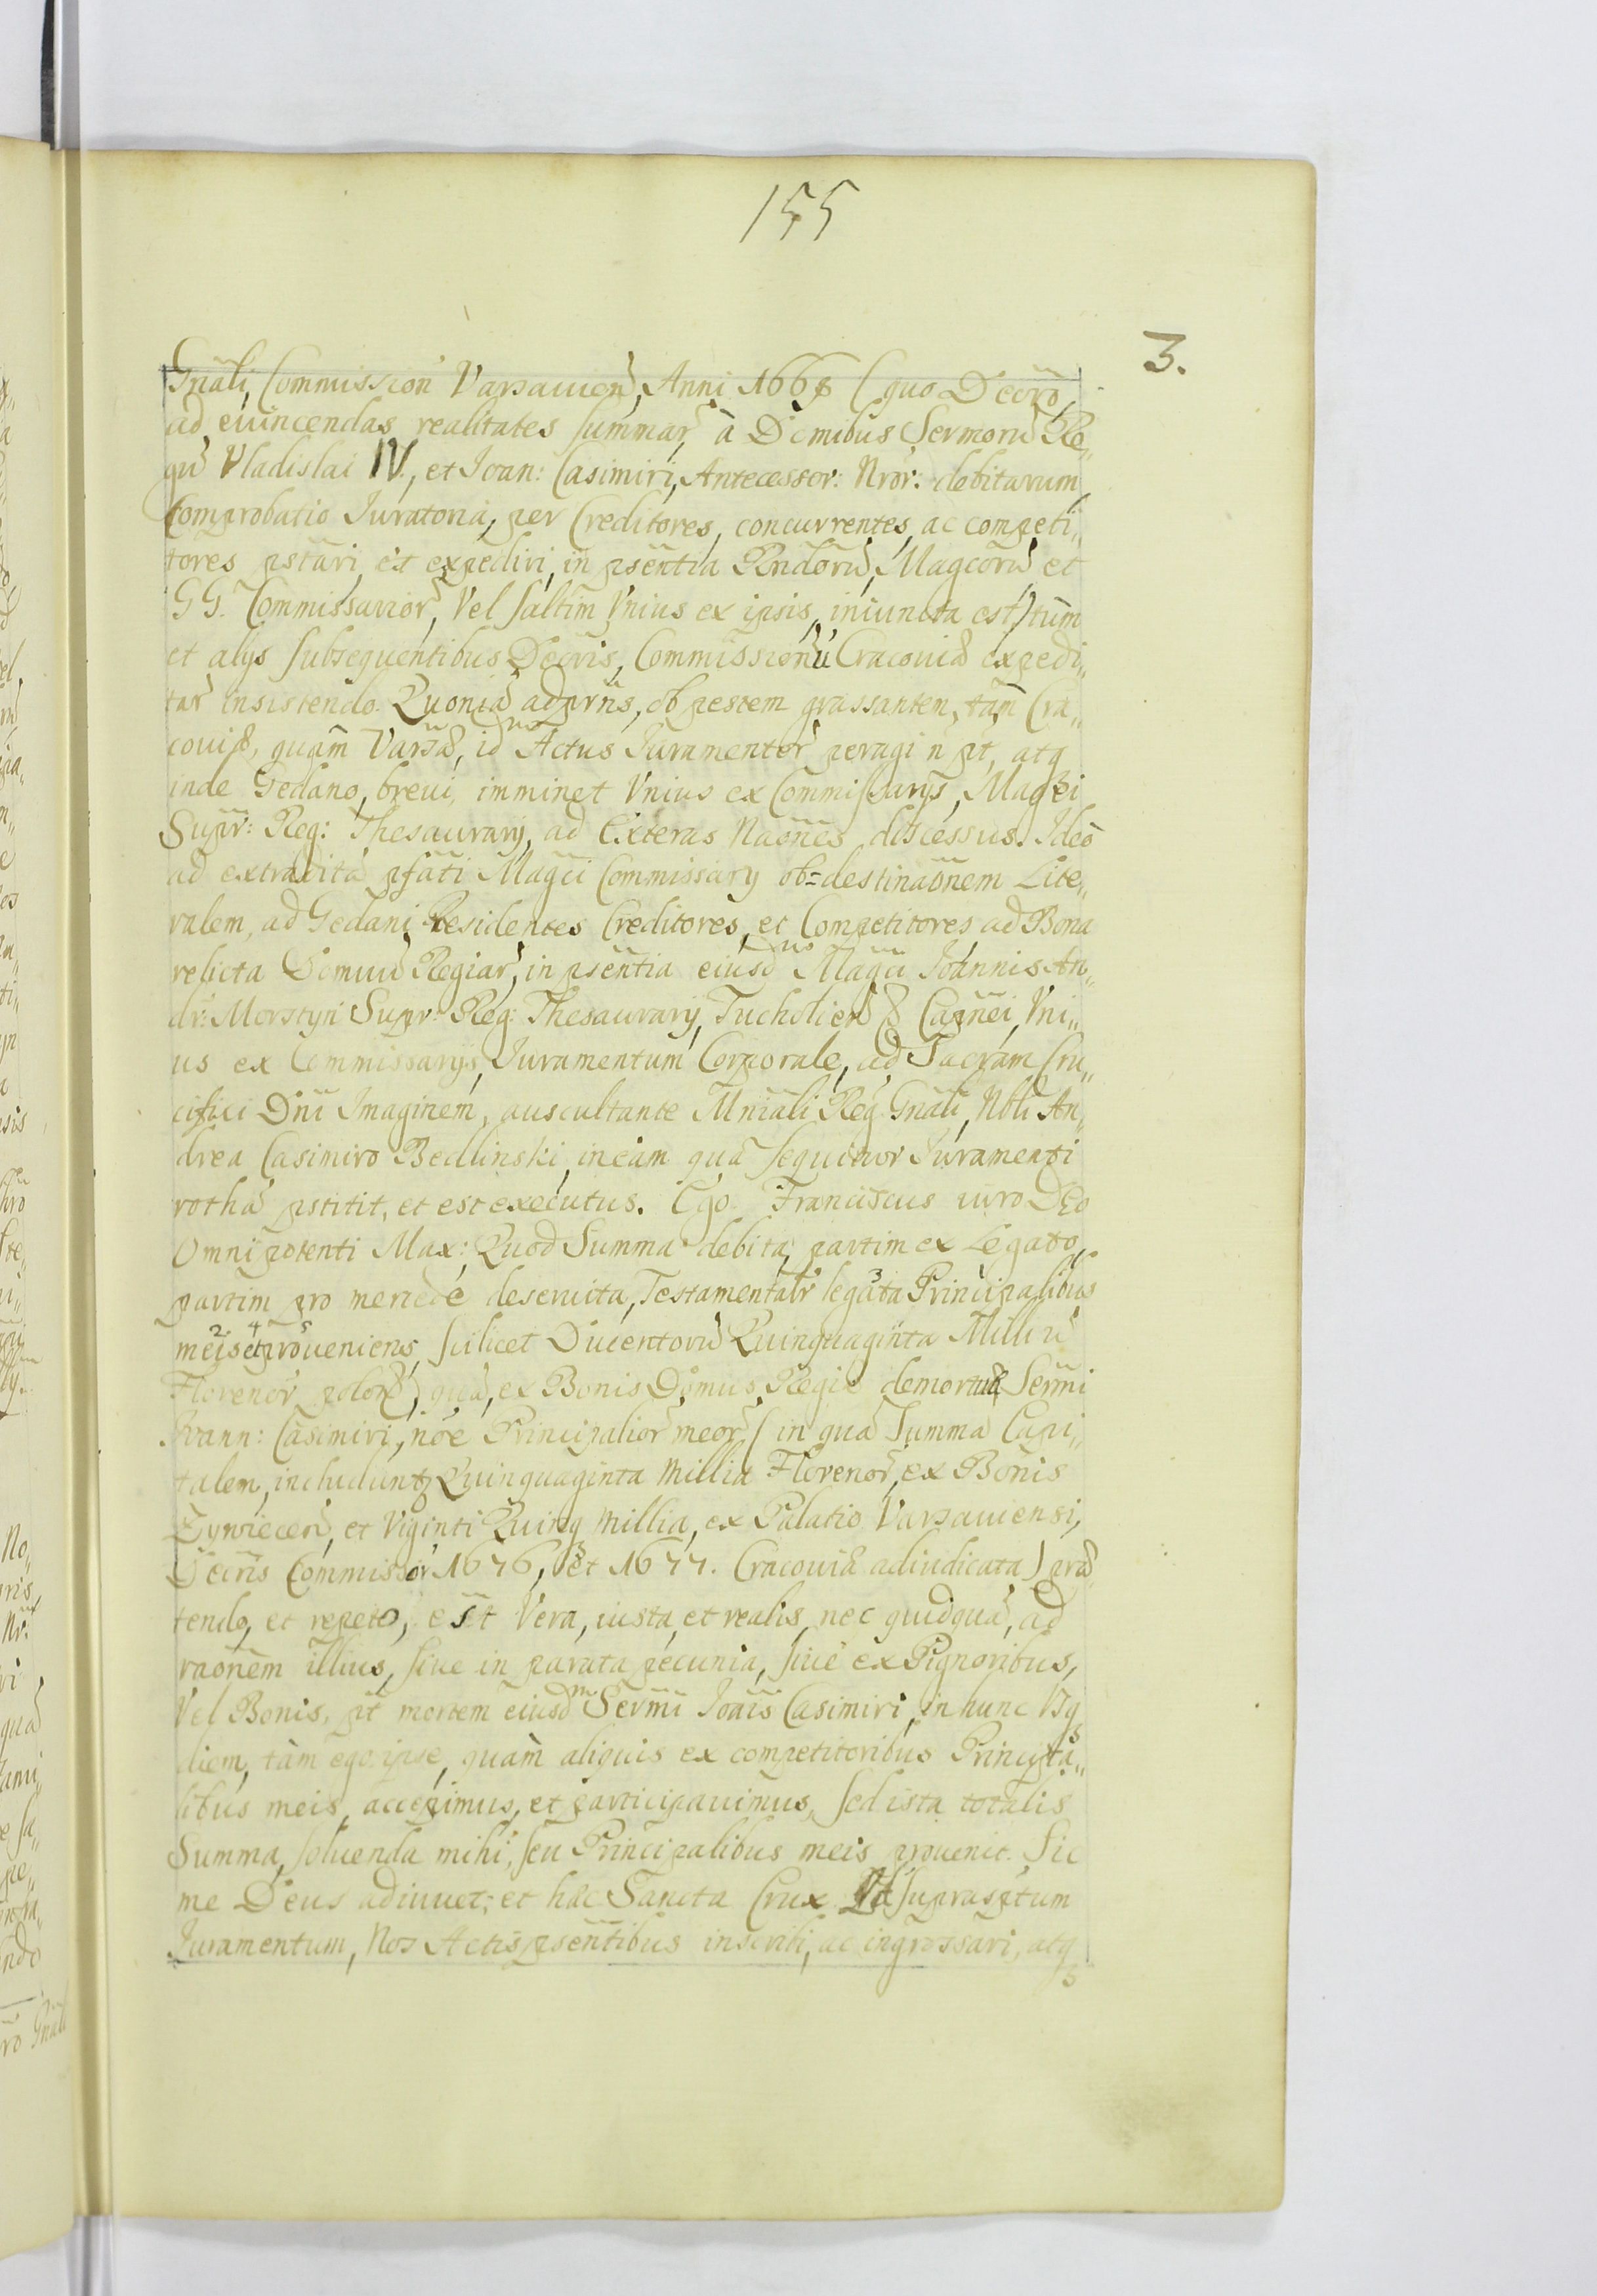 155
3.
Gnali, Commission Varsauien, Anni 1668 (quo Decro,
ad euincendas realitates summar, à Domibus Sermorũ Re„
gũ Vladislai IV., et Ioan: Casimiri, Antecessor: Nror: debitarum
Comprobatio Iuratoria, per Creditores, concurrentes, ac competi„
tores pstari, et expediri, in psentia Rndorũ, Magcorũ et
GG. Commissarior, Vel saltim Vnius ex ipsis, iniuncta est) tùm
et alys subsequentibus Decris, Commissionũ Cracouiæ expedi„
tar insistendo. Quoniã ad prns, ob pestem grassantem, tàm Cra„
couiæ, quàm Varsæ, id Actus Iuramentor peragi n pt, atq
inde Gedano, breui, imminet Vnius ex Commissarys, Magci
Supr: Reg: Thesaurarij, ad Exteras Naones discessus. Ideò
ad pfati Magci Commissarij ob=destinaonem Lite„
ralem, ad Gedani Residentes Creditores, et Competitores ad Bona
relicta Domuũ Regiar, in psentia eiusd Magci Ioannis An„
dr: Morstyn Supr: Reg: Thesaurarij, Tucholien & Capnei, Vni„
us ex Commissarijs, Iuramentum Corporale, ad Sacram Cru„
cifixi Dni Imaginem, auscultante Mniali Reg. Gnali, Nbli An„
drea Casimiro Bedlinski, in eam quã sequitur Iuramenti
rothã pstitit, et est executus. Ego Franciscus iuro DEo
Omnipotenti Max: Quod Summa debita, partim ex Legato,
partim pro mercede deseruita, Testamentalr legata Principalibus
meis et proueniens, scilicet Ducentorũ Quinquaginta Milliũ
Florenor polon, quã, ex Bonis Domus Regiæ demortuæ Sermi
Ioann: Casimiri, noe Principalior meor (in quã Summã Capi„
talem, includunt Quinquaginta Millia Florenor, ex Bonis
Zywiecen, et Viginti Quinq Millia, ex Palatio Varsauiensi,
Decris Commissor 1676, et 1677. Cracouiæ adiudicata) præ„
tendo, et repeto, est Vera, iusta, et realis, nec quidquã, ad
raonem illius, siue in parata pecunia, siue ex Pignoribus,
Vel Bonis, pt mortem eiusd Sermi Ioais Casimiri, in hunc Vsq
diem, tàm ego ipse, quàm aliquis ex competitoribus Principa„
libus meis, accepimus, et participauimus, sed ista totalis
Summa, soluenda mihi, seu Principalibus meis prouenit. Sic
me Deus adiuuet, et hæc Sancta Crux. Qd suprasptum
Iuramentum, Nos Actis psentibus inscribi, ac ingrossari, atq